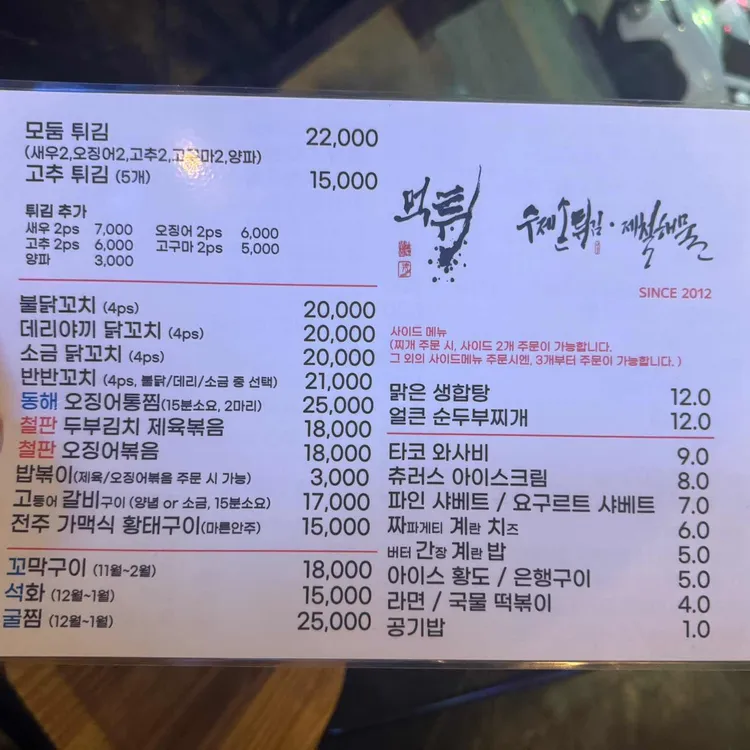 모둠 튀김 22,000
(새우2,오징어2,고추2,고구마2,양파)
고추 튀김 (5개) 15,000
튀김 추가
새우 2ps 7,000 오징어 2ps 6,000
고추 2ps 6,000 고구마 2ps 5,000
양파 3,000
불닭꼬치 (4ps) 20,000
데리야끼 닭꼬치 (4ps) 20,000
소금 닭꼬치 (4ps) 20,000
반반꼬치 (4ps, 불닭/데리/소금 중 선택) 21,000
동해 오징어통찜(15분소요, 2마리) 25,000
철판 두부김치 제육볶음 18,000
철판 오징어볶음 18,000
밥볶이(제육/오징어볶음 주문 시 가능) 3,000
고등어 갈비구이 (양념 or 소금, 15분소요) 17,000
전주 가맥식 황태구이(마른안주) 15,000
꼬막구이 (11월~2월) 18,000
석화 (12월~1월) 15,000
굴찜 (12월~1월) 25,000
먹튀
수제손튀김·제철해물
SINCE 2012
사이드 메뉴
(찌개 주문 시, 사이드 2개 주문이 가능합니다.
그 외의 사이드메뉴 주문시엔, 3개부터 주문이 가능합니다. )
맑은 생합탕 12.0
얼큰 순두부찌개 12.0
타코 와사비 9.0
츄러스 아이스크림 8.0
파인 샤베트 / 요구르트 샤베트 7.0
짜파게티 계란 치즈 6.0
버터 간장 계란 밥 5.0
아이스 황도 / 은행구이 5.0
라면 / 국물 떡볶이 4.0
공기밥 1.0